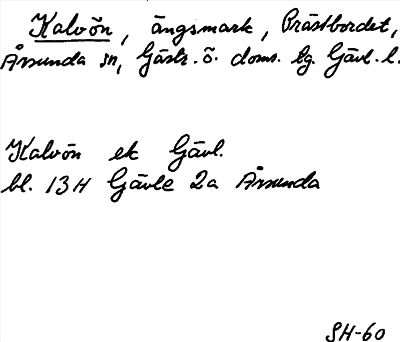 Kalvön, ängsmark, Prästbordet,
Årsunda sn, Gästr. ö. doms. lg. Gävl. l.
Kalvön ek Gävl.
bl. 13H Gävle 2a Årsunda
SH-60